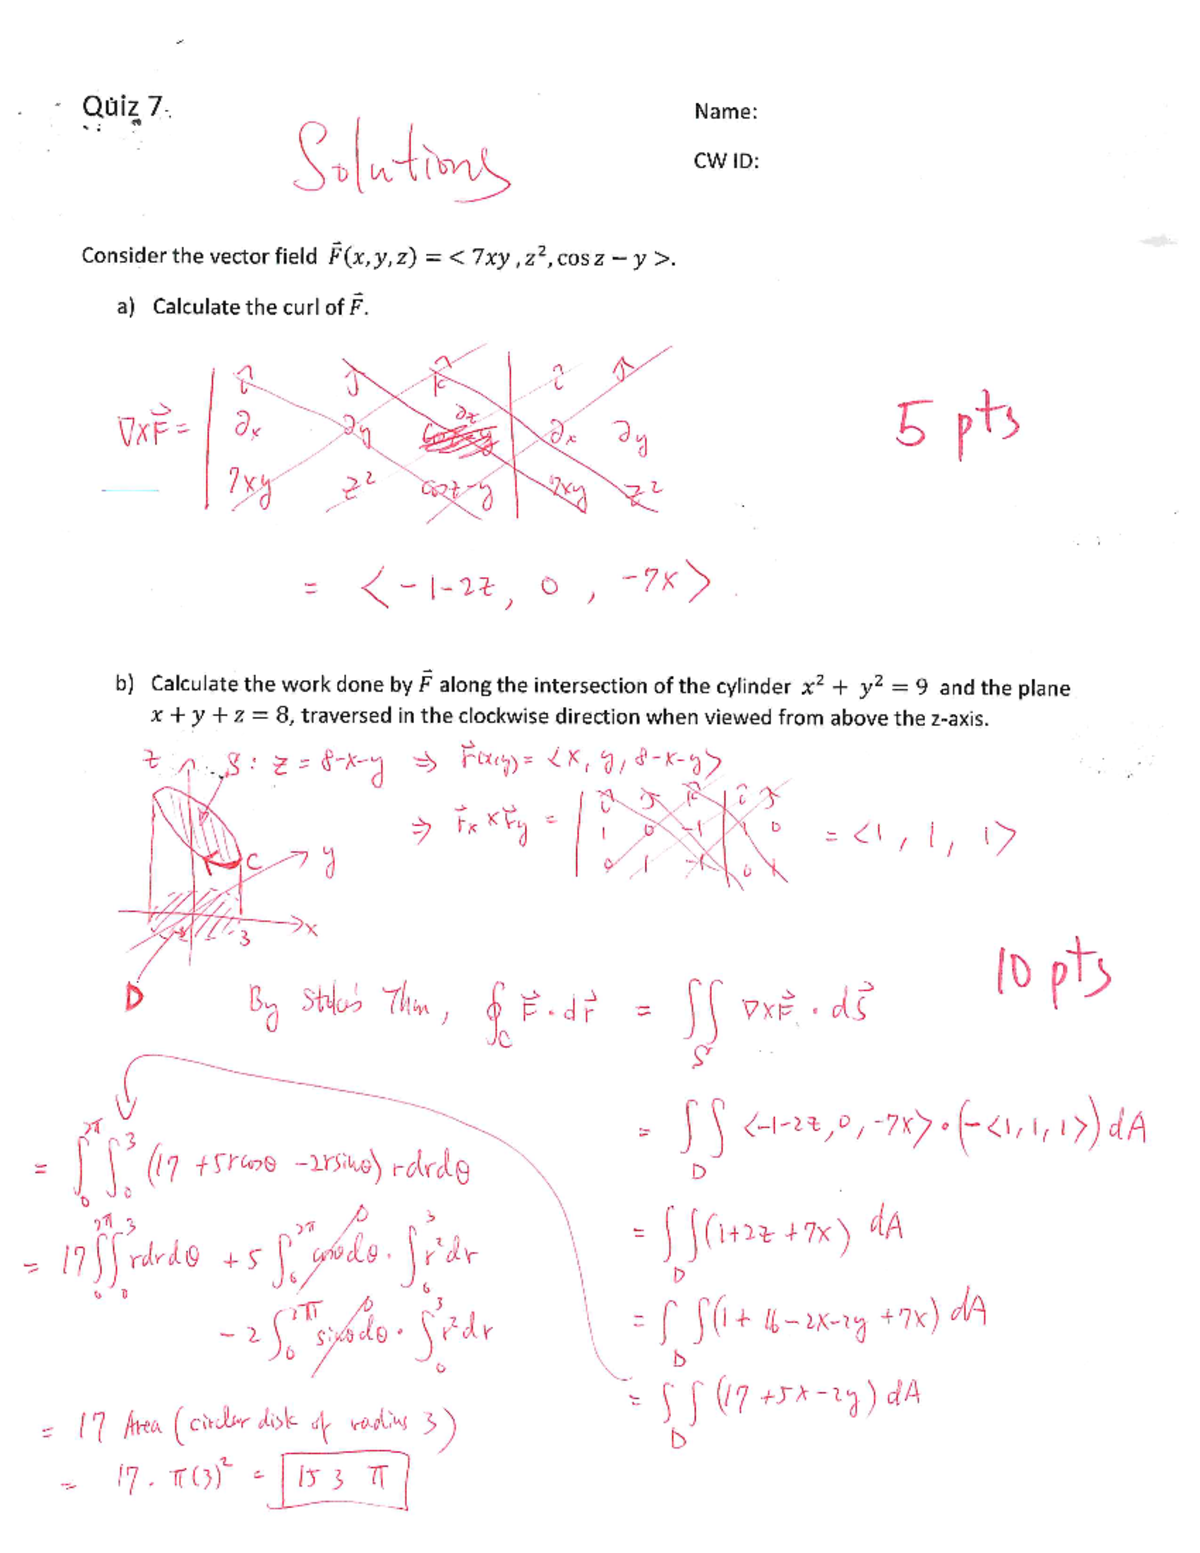 Quiz 7.
Name:
Solutions
CW ID:
Consider the vector field F⃗(x, y, z) = < 7xy , z², cos z − y >.
a) Calculate the curl of F⃗.
∇×F⃗ = | î ĵ k̂ | î ĵ
∂x ∂y ∂z | ∂x ∂y
7xy z² cosz-y | 7xy z²
5 pts
= <-1-2z, 0, -7x>.
b) Calculate the work done by F⃗ along the intersection of the cylinder x² + y² = 9 and the plane
x + y + z = 8, traversed in the clockwise direction when viewed from above the z-axis.
z S: z = 8-x-y ⇒ r⃗(x,y) = <x, y, 8-x-y>
⇒ r⃗x × r⃗y = | î ĵ k̂ | î ĵ
1 0 -1 | 1 0
0 1 -1 | 0 1
= <1, 1, 1>
C y
x
3
D
10 pts
By Stokes Thm, ∮C F⃗ · dr⃗ = ∬S ∇×F⃗ · dS⃗
= ∬D <-1-2z, 0, -7x> · (-<1, 1, 1>) dA
= ∬D (1+2z+7x) dA
= ∬D (1+16-2x-2y+7x) dA
= ∬D (17+5x-2y) dA
= ∫₀^2π ∫₀^3 (17 + 5rcosθ - 2rsinθ) rdrdθ
= 17 ∫₀^2π ∫₀^3 rdrdθ + 5 ∫₀^2π cosθdθ · ∫₀^3 r²dr
0
- 2 ∫₀^2π sinθdθ · ∫₀^3 r²dr
0
= 17 Area (circular disk of radius 3)
= 17 · π(3)² = 153 π